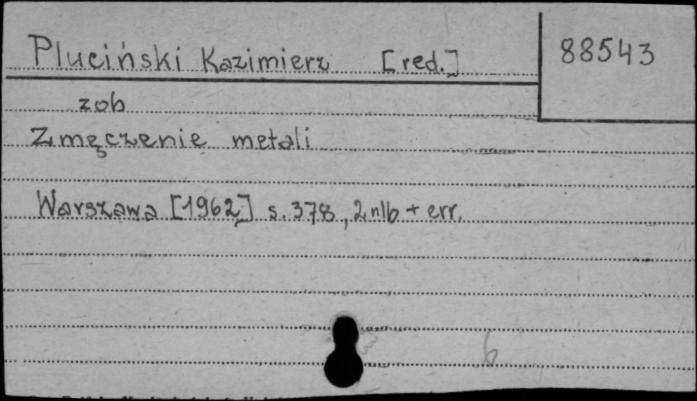 Pluciński Kazimierz [red.]
88543
zob
Zmęczenie metali
Warszawa [1962] s. 378, 2 nlb + err.
6